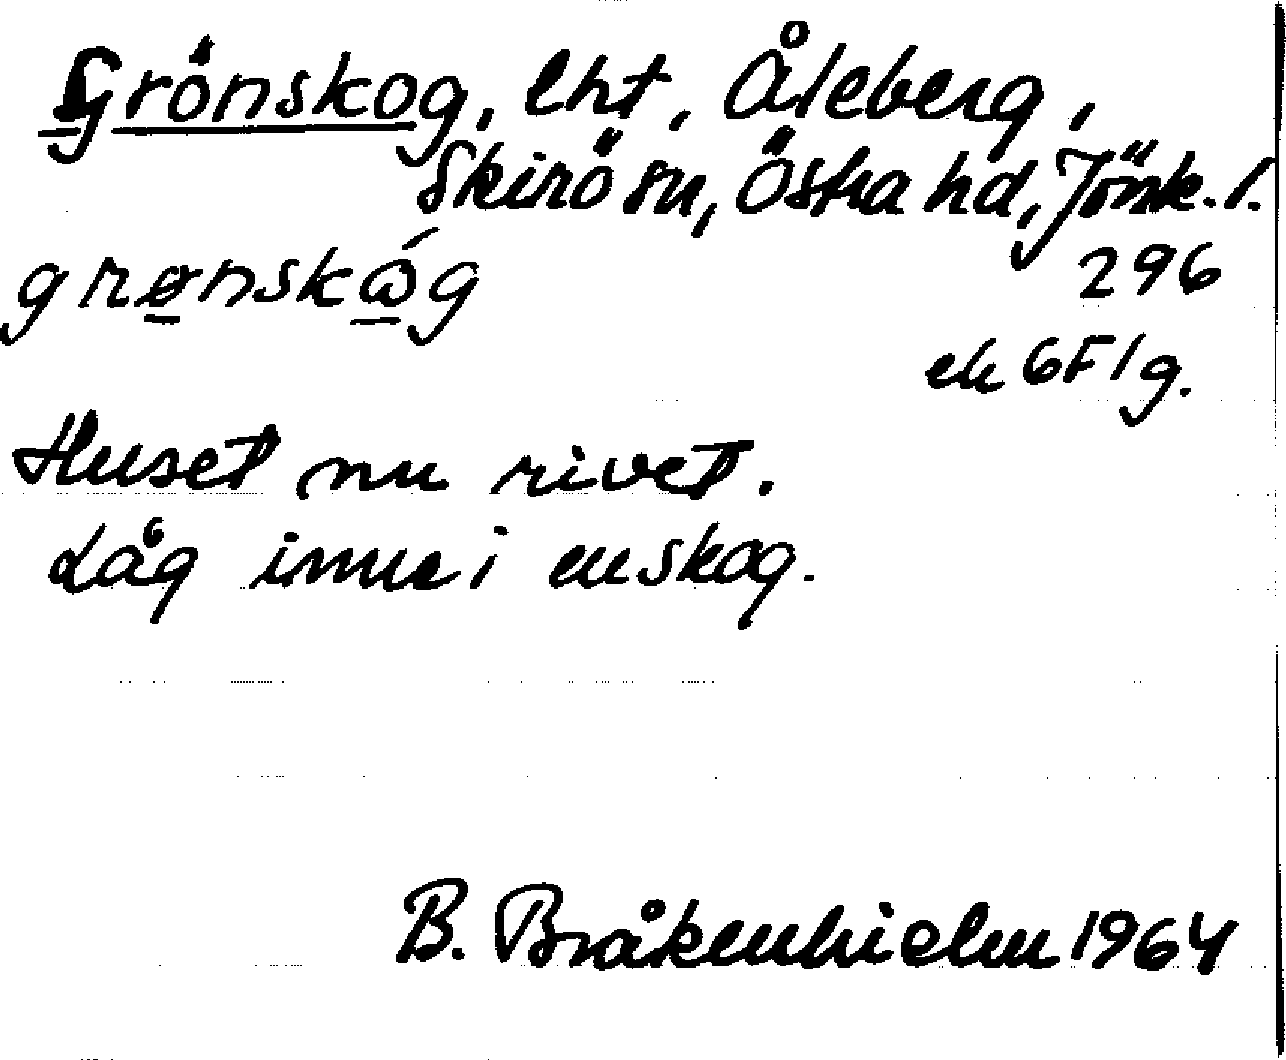 Grönskog, lht, Åleberg,
Skirö sn, Östra hd, Jönk. l.
grønskɷ́g
296
ek 6F1g.
Huset nu rivet.
Låg inne i en skog.
B. Bråkenhielm 1964